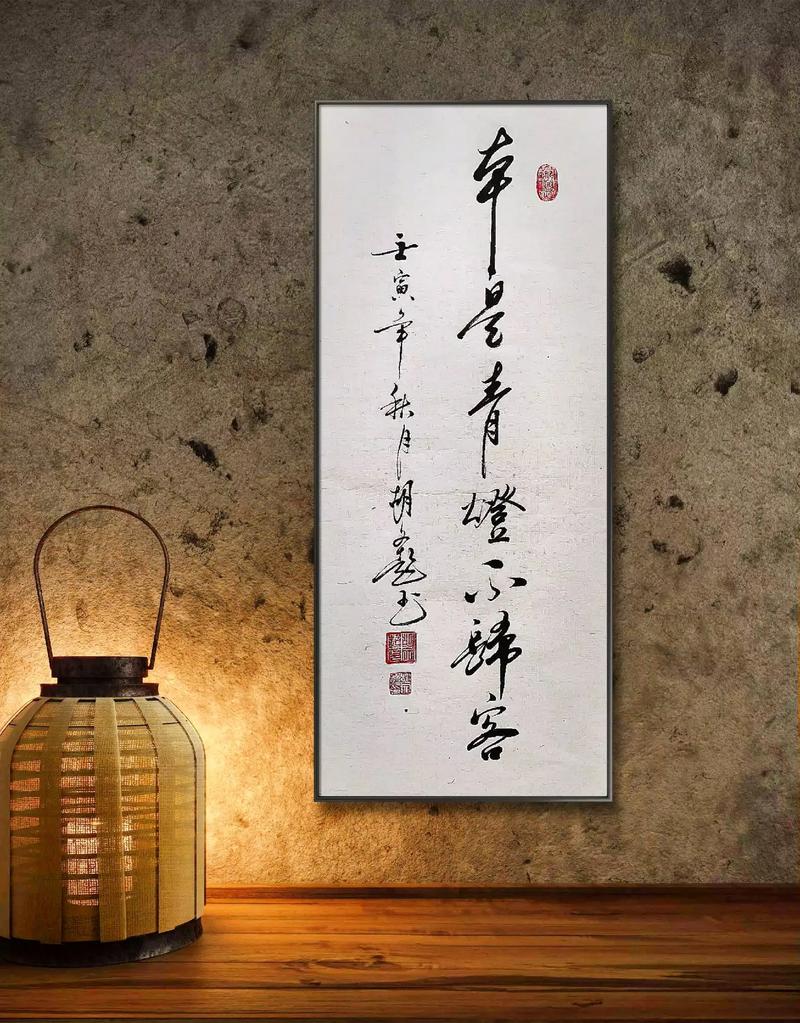 本是青燈不歸客
壬寅年秋月胡书